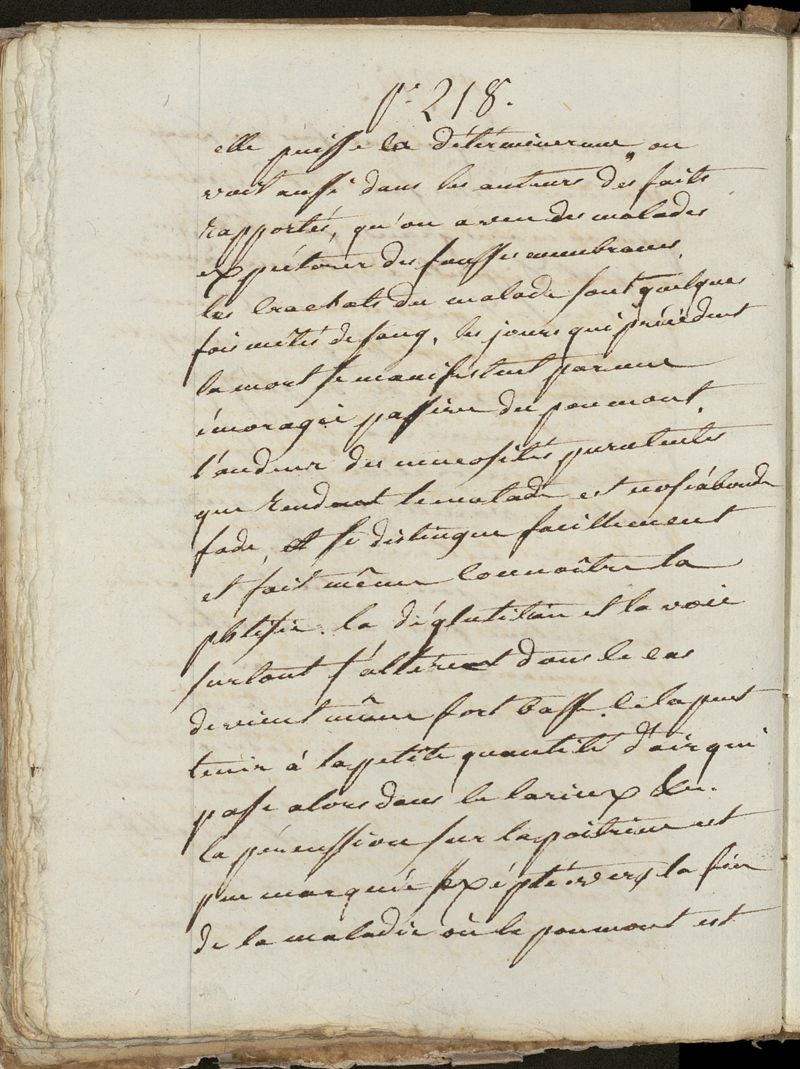 p. 218.
elle puisse la déterminer on
voit aussi dans les auteurs des faits
rapportés, qu'on a vu des malades
expectorer des fausses membranes.
les Crachats du malade sont quelques
fois mêlés de sang, les jours qui précédent
la mort se manifestent par une
émoragie passive du poumont.
l'audeur des mucosités purulentes
que Rendent le malade est
fade, et se distingue facillement
et fait même Connaître la
phtisie. la déglutition et la voie
surtout s'altèrent dans le cas
devient même fort basse. Cela peut
tenir à la petite quantité d'air qui
passe alors dans le larinx &c.
la pércussion sur la poitrine est
peu marquée exépté vers la fin
de la maladie où le poumont est